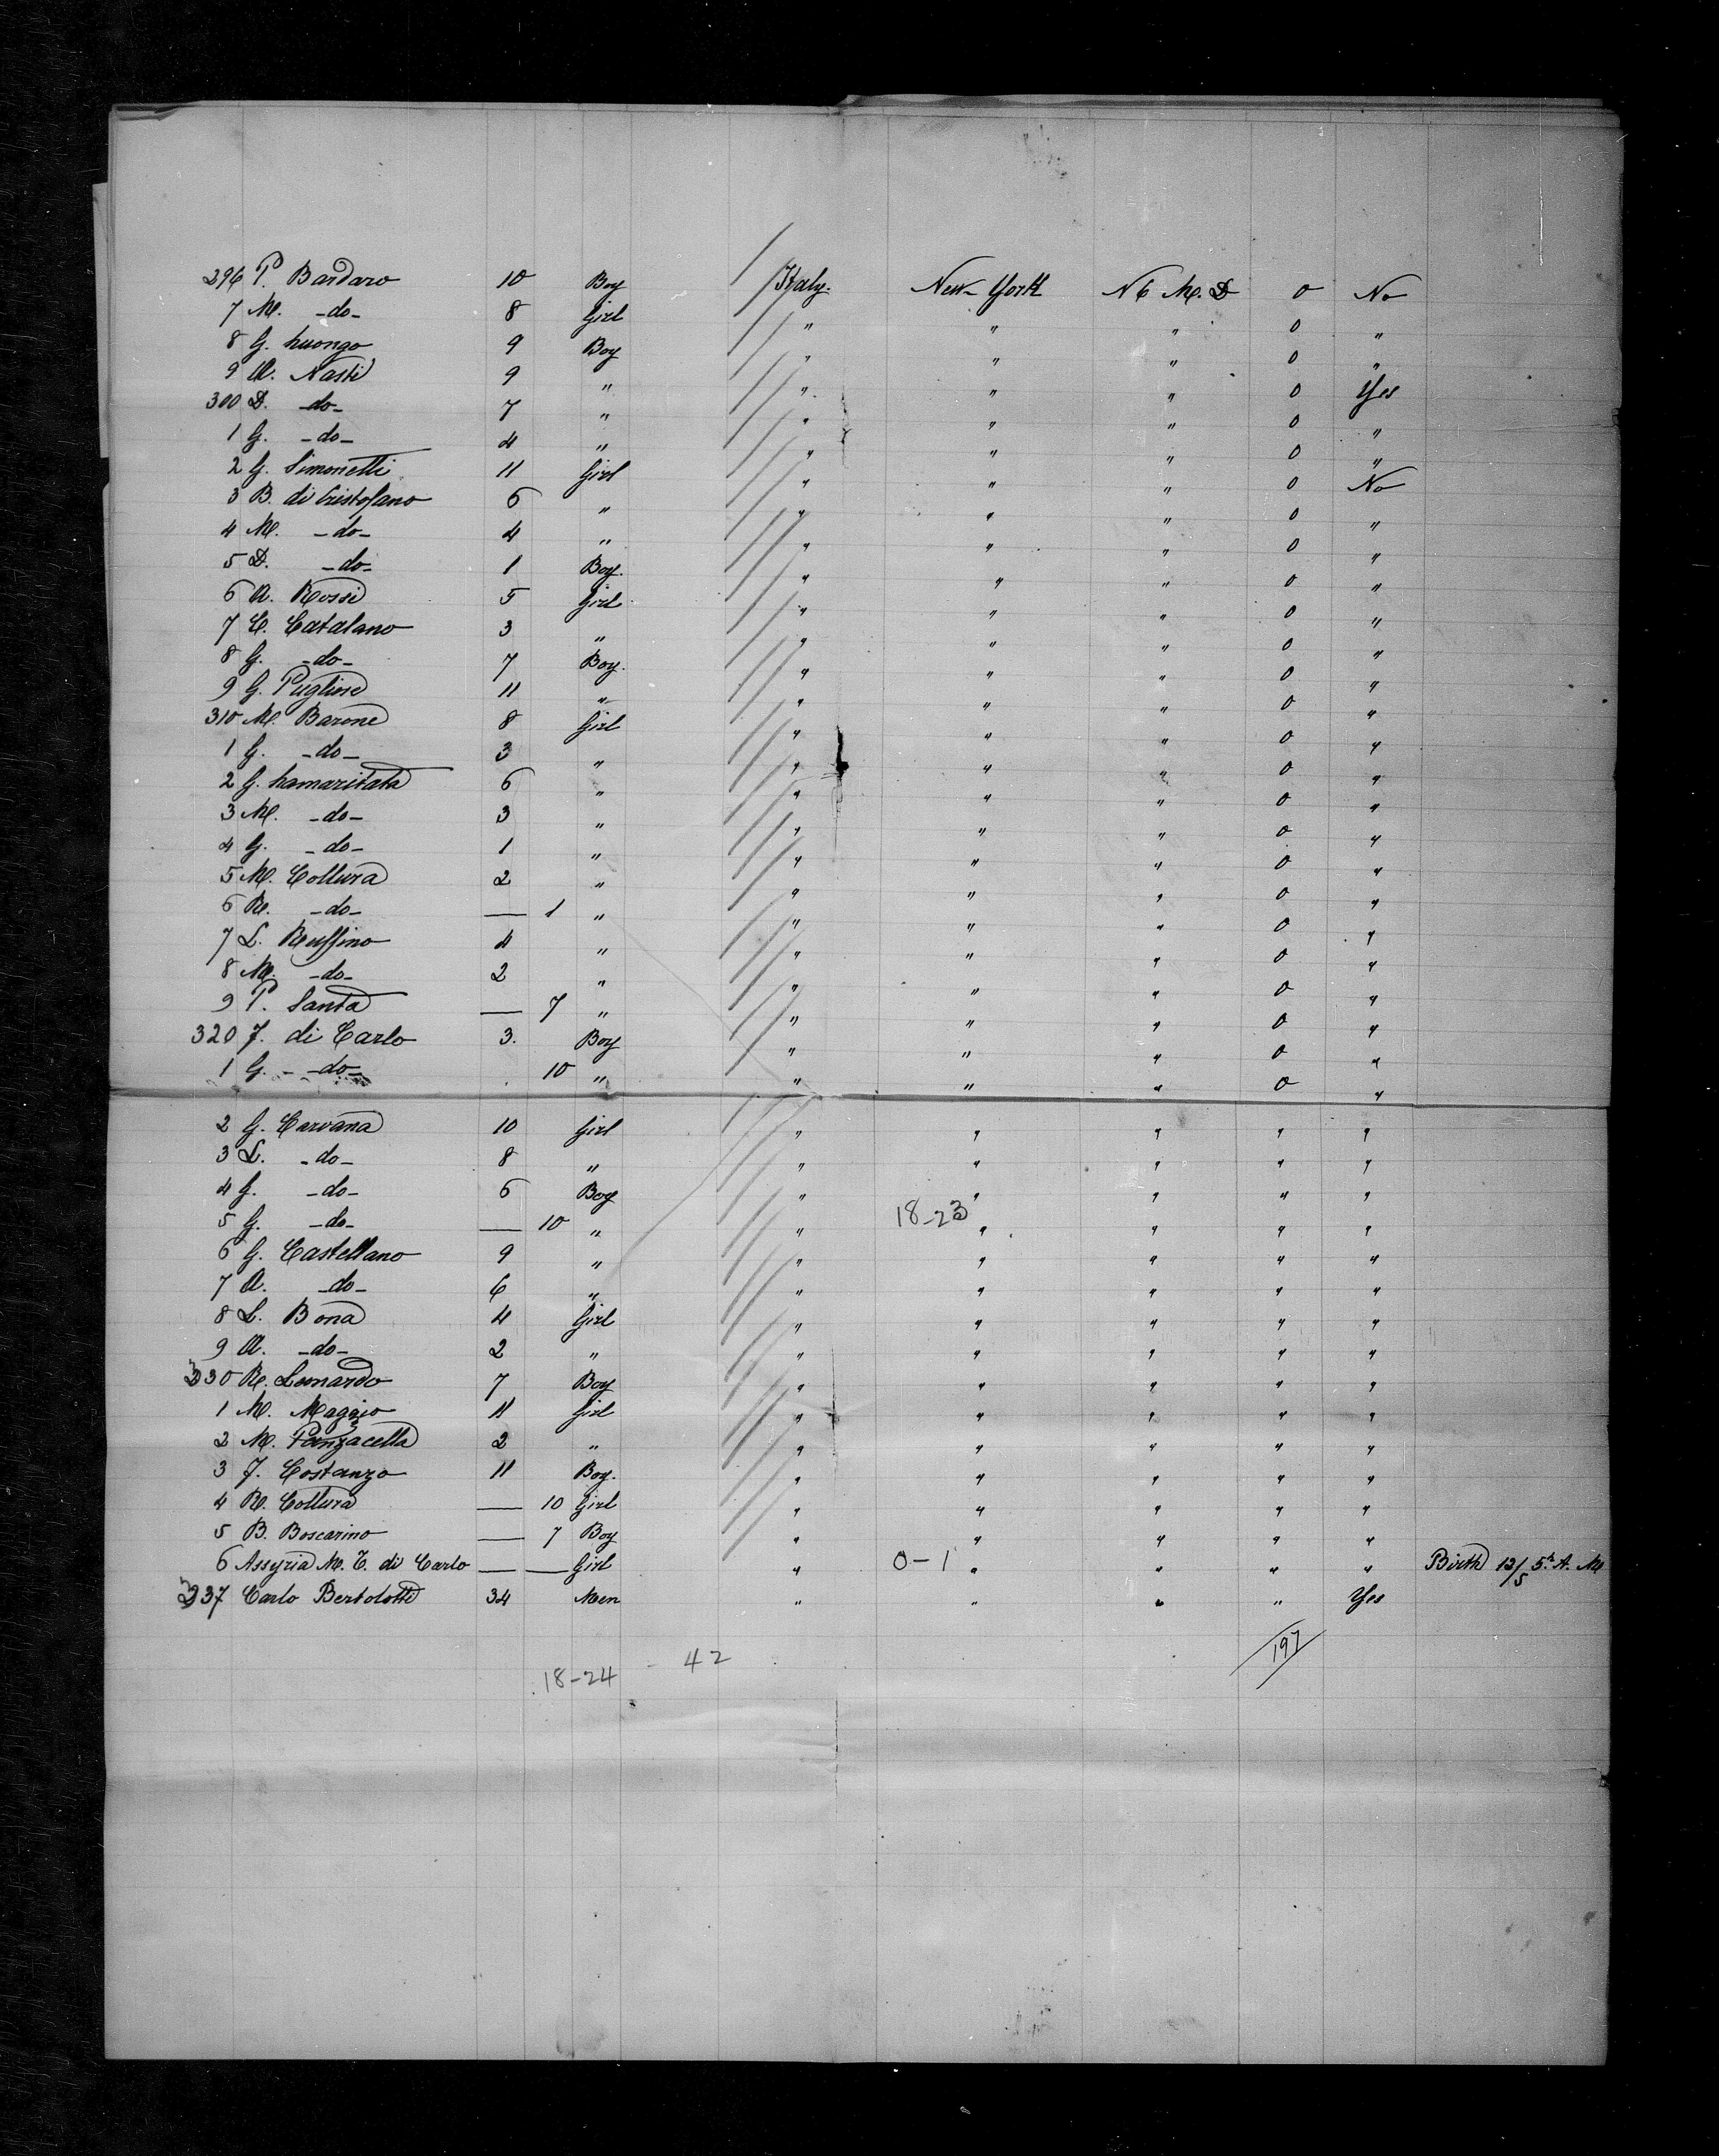 296 P. Bardaro 10 Boy Italy. New-York N6 M. D 0 No
7 M. -do- 8 Girl " " " 0 "
8 G. Luongo 9 Boy " " " 0 "
9 A. Nasti 9 " " " " 0 Yes
300 D. -do- 7 " " " " 0 "
1 G. -do- 4 " " " " 0 "
2 G. Simonetti 11 Girl " " " 0 No
3 B. di Cristofano 6 " " " " 0 "
4 M. -do- 4 " " " " 0 "
5 D. -do- 1 Boy. " " " 0 "
6 A. Rossi 5 Girl " " " 0 "
7 C. Catalano 3 " " " " 0 "
8 G. -do- 7 Boy. " " " 0 "
9 G. Pugliese 11 " " " " 0 "
310 M. Barone 8 Girl " " " 0 "
1 G. -do- 3 " " " " 0 "
2 G. Lamaritata 6 " " " " 0 "
3 M. -do- 3 " " " " 0 "
4 G. -do- 1 " " " " 0 "
5 M. Collura 2 " " " " 0 "
6 R. -do- — 1 " " " " 0 "
7 L. Ruffino 4 " " " " 0 "
8 M. -do- 2 " " " " 0 "
9 P. Santa — 7 " " " " 0 "
320 F. di Carlo 3. Boy " " " 0 "
1 G. -do- 10 " " " " 0 "
2 G. Carvana 10 Girl " " " " "
3 L. -do- 8 " " " " " "
4 G. -do- 6 Boy " " " " "
5 G. -do- — 10 " " 18-23 " " " "
6 G. Castellano 9 " " " " " "
7 A. -do- 6 " " " " " "
8 L. Bona 4 Girl " " " " "
9 A. -do- 2 " " " " " "
330 R. Leonardo 7 Boy " " " " "
1 M. Maggio 11 Girl " " " " "
2 M. Panzacella 2 " " " " " "
3 F. Costanzo 11 Boy. " " " " "
4 R. Collura — 10 Girl " " " " "
5 B. Boscarino — 7 Boy " " " " "
6 Assyria M. T. di Carlo — — Girl " 0-1 " " " " Birth 12/5 5h A. M
337 Carlo Bertolotti 34 Men " " " " Yes
197
18-24 - 42